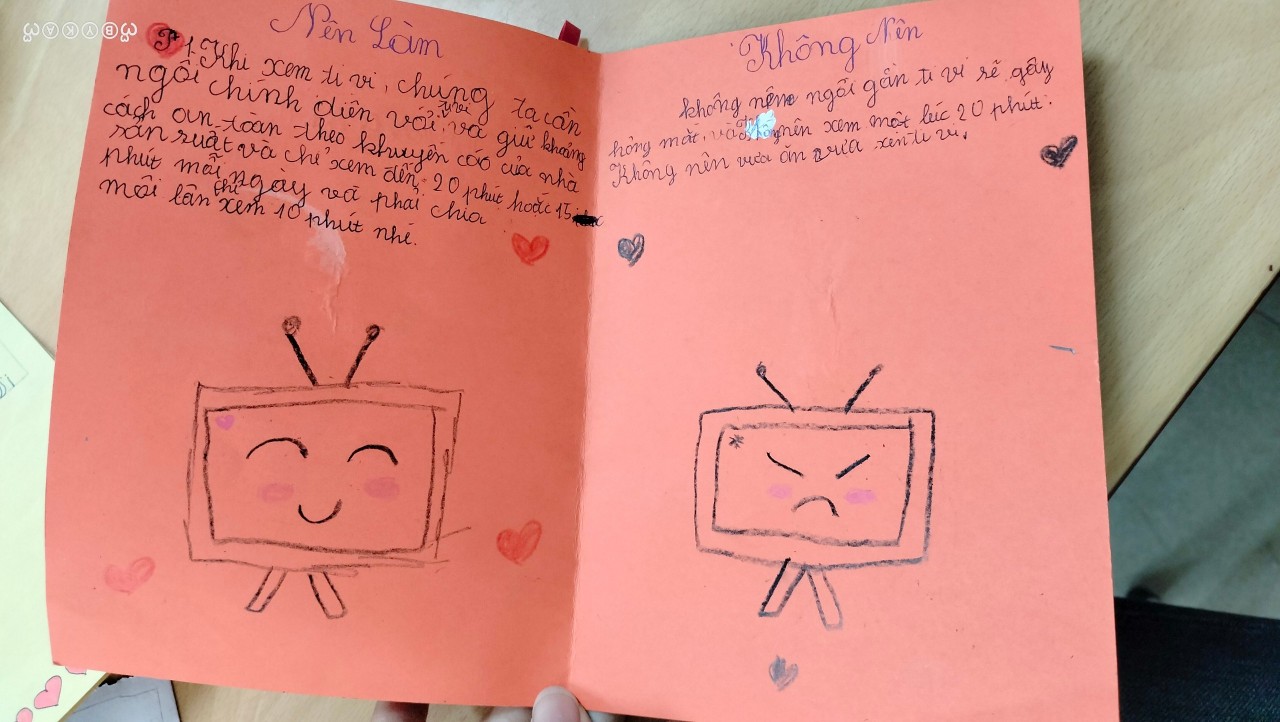 ꞶBYKAꞶ
Nên Làm
1. Khi xem ti vi, chúng ta cần
ngồi chính diện với ti vi và giữ khoảng
cách an toàn theo khuyến cáo của nhà
sản xuất và chỉ xem đến 20 phút hoặc 15
phút mỗi ngày và phải chia
mỗi lần chỉ xem 10 phút nhé.
Không Nên
không nên ngồi gần ti vi sẽ gây
hỏng mắt, và không nên xem một lúc 20 phút.
Không nên vừa ăn vừa xen ti vi.